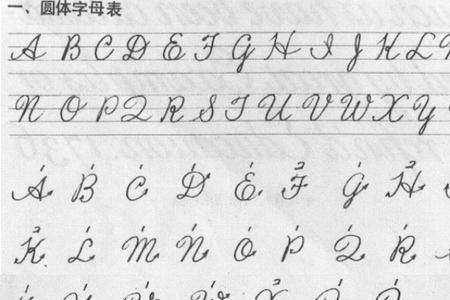 一、圆体字母表
A B C D E F G H I J K L
N O P Q R S T U V W X Y
A B C D E F G H
K L M N O P Q R